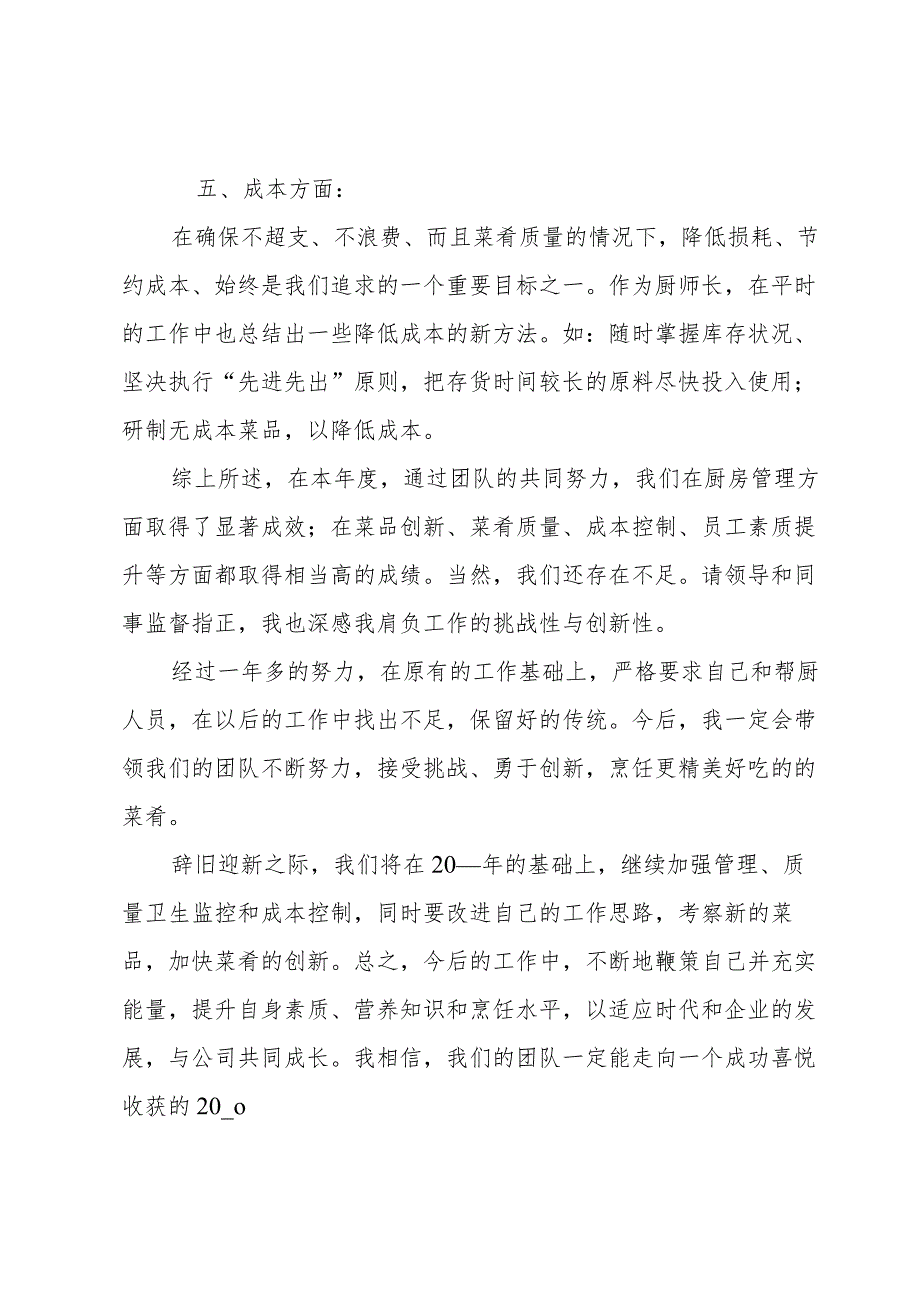 五、成本方面：
在确保不超支、不浪费、而且菜肴质量的情况下，降低损耗、节
约成本、始终是我们追求的一个重要目标之一。作为厨师长，在平时
的工作中也总结出一些降低成本的新方法。如：随时掌握库存状况、
坚决执行“先进先出”原则，把存货时间较长的原料尽快投入使用；
研制无成本菜品，以降低成本。
综上所述，在本年度，通过团队的共同努力，我们在厨房管理方
面取得了显著成效；在菜品创新、菜肴质量、成本控制、员工素质提
升等方面都取得相当高的成绩。当然，我们还存在不足。请领导和同
事监督指正，我也深感我肩负工作的挑战性与创新性。
经过一年多的努力，在原有的工作基础上，严格要求自己和帮厨
人员，在以后的工作中找出不足，保留好的传统。今后，我一定会带
领我们的团队不断努力，接受挑战、勇于创新，烹饪更精美好吃的的
菜肴。
辞旧迎新之际，我们将在 20—年的基础上，继续加强管理、质
量卫生监控和成本控制，同时要改进自己的工作思路，考察新的菜
品，加快菜肴的创新。总之，今后的工作中，不断地鞭策自己并充实
能量，提升自身素质、营养知识和烹饪水平，以适应时代和企业的发
展，与公司共同成长。我相信，我们的团队一定能走向一个成功喜悦
收获的 20_o